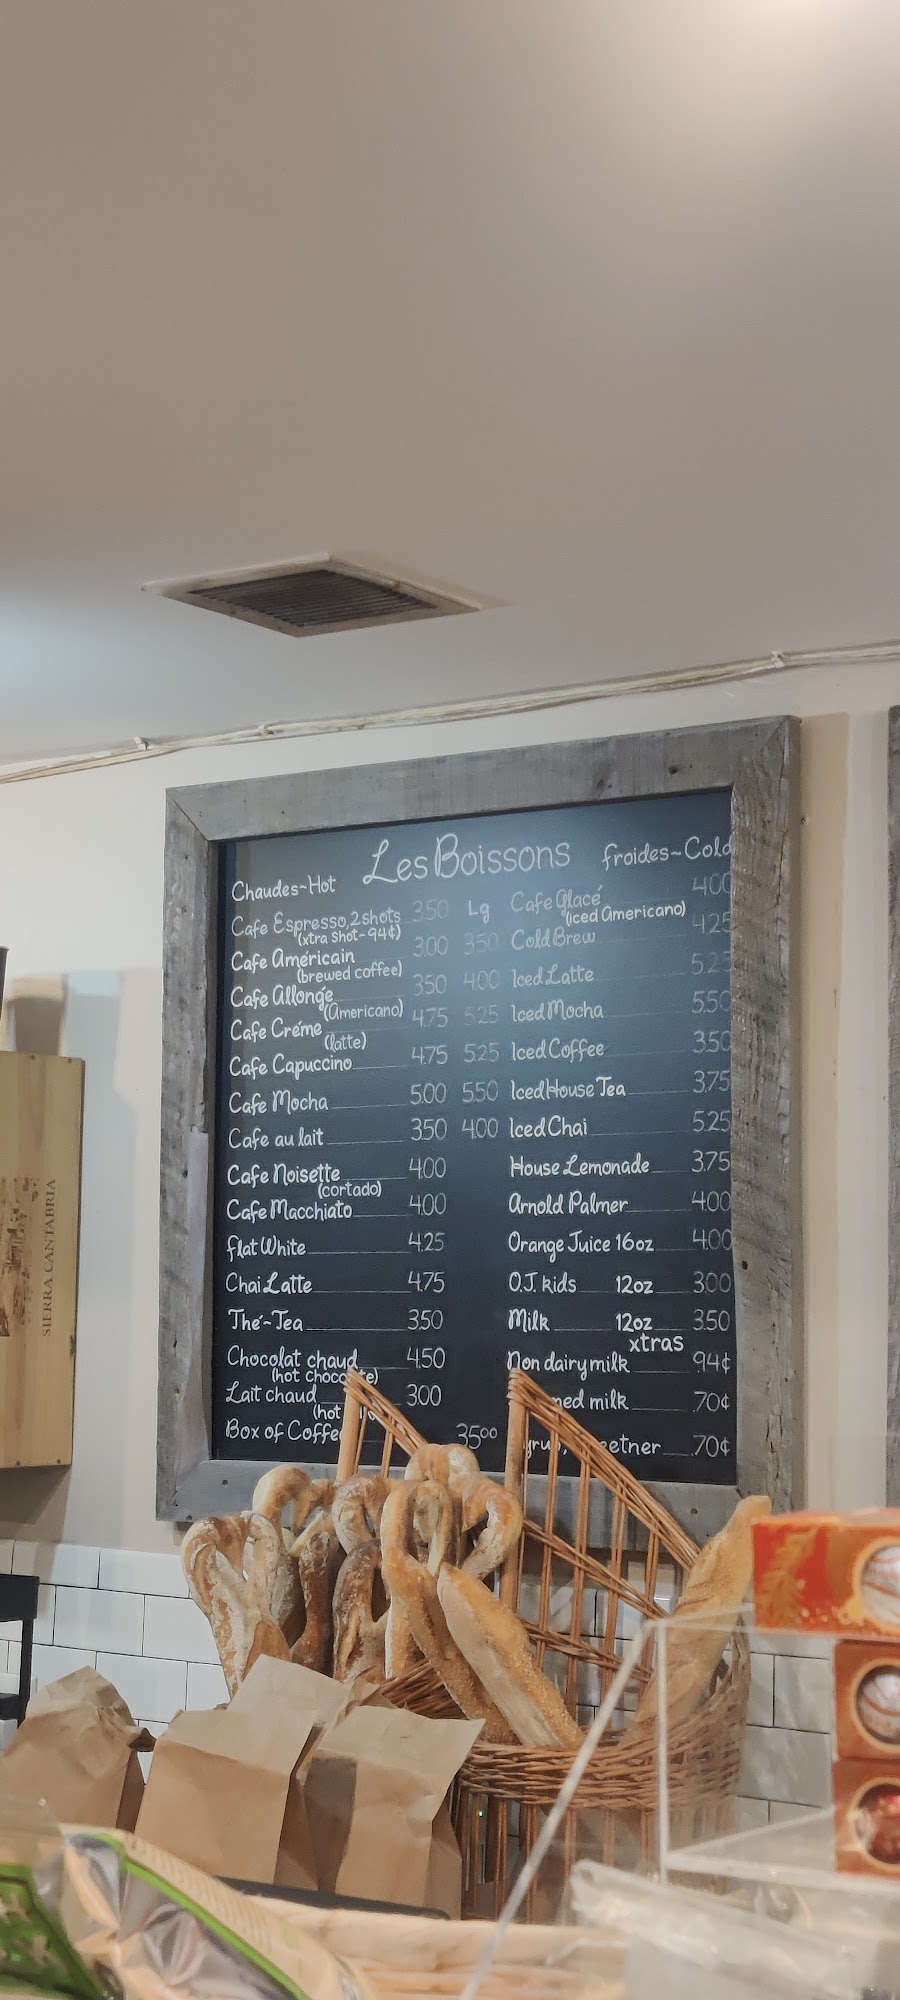 Les Boissons
Chaudes~Hot
Cafe Espresso, 2 shots 3.50 Lg
(xtra shot-94¢)
Cafe Américain 3.00 3.50
(brewed coffee)
Cafe Allongé 3.50 4.00
(Americano)
Cafe Créme 4.75 5.25
(latte)
Cafe Capuccino 4.75 5.25
Cafe Mocha 5.00 5.50
Cafe au lait 3.50 4.00
Cafe Noisette 4.00
(cortado)
Cafe Macchiato 4.00
flat White 4.25
Chai Latte 4.75
Thé~Tea 3.50
Chocolat chaud 4.50
(hot
Lait chaud 3.00
(hot
Box of Coffee 35.00
froides~Cold
Cafe Glacé 4.00
(iced Americano)
Cold Brew 4.25
Iced Latte 5.25
Iced Mocha 5.50
Iced Coffee 3.50
Iced House Tea 3.75
Iced Chai 5.25
House Lemonade 3.75
Arnold Palmer 4.00
Orange Juice 16oz 4.00
O.J. kids 12oz 3.00
Milk 12oz 3.50
xtras
Non dairy milk .94¢
milk .70¢
.70¢
SIERRA CANTABRIA